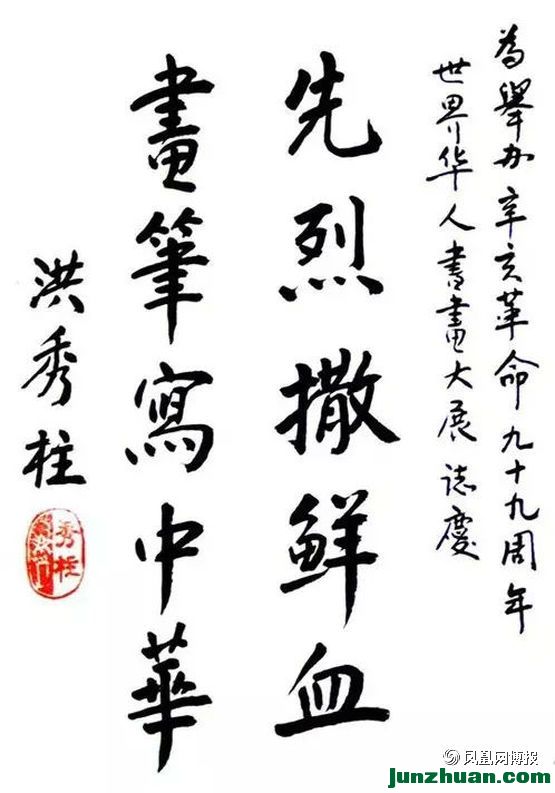 為舉办辛亥革命九十九周年
世界华人書畫大展誌慶
先烈撒鲜血
畫筆寫中華
洪秀柱
秀柱
凤凰网博报
junzhuan.com